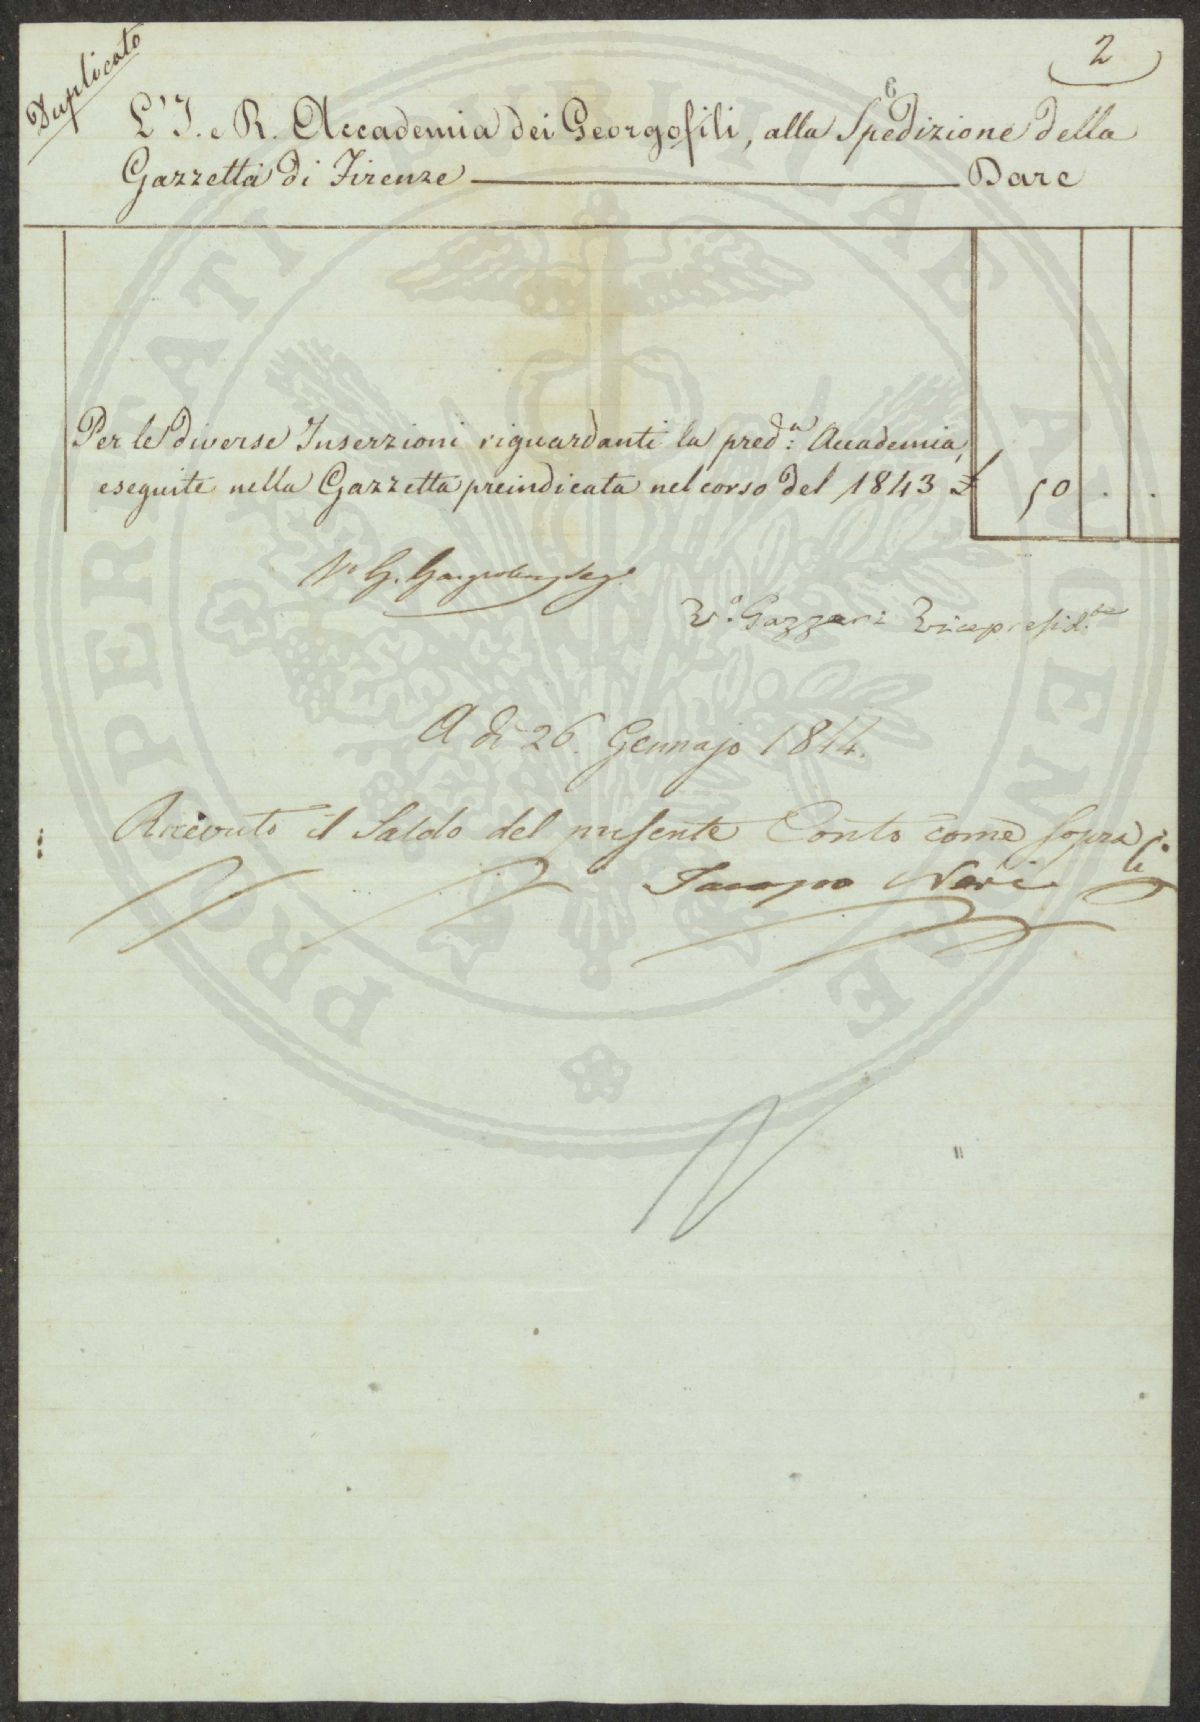 Duplicato
2
6
L'I. e R. Accademia dei Georgofili, alla Spedizione della
Gazzetta di Firenze ——— Dare
Per le diverse Inserzioni riguardanti la pred.ª Accademia,
eseguite nella Gazzetta preindicata nel corso del 1843 £ 50 . .
V.º G.
V.º Gazzeri Vicepresid.te
A dì 26. Gennajo 1844.
Ricevuto il Saldo del presente Conto come sopra
Jacopo Neri
PROSPERITATI PUBLICAE AUGENDAE